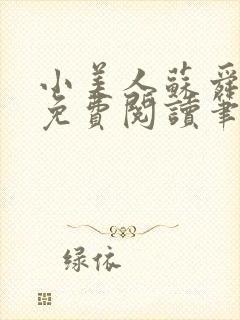 小美人蘇舜
免費閱讀筆
绿依